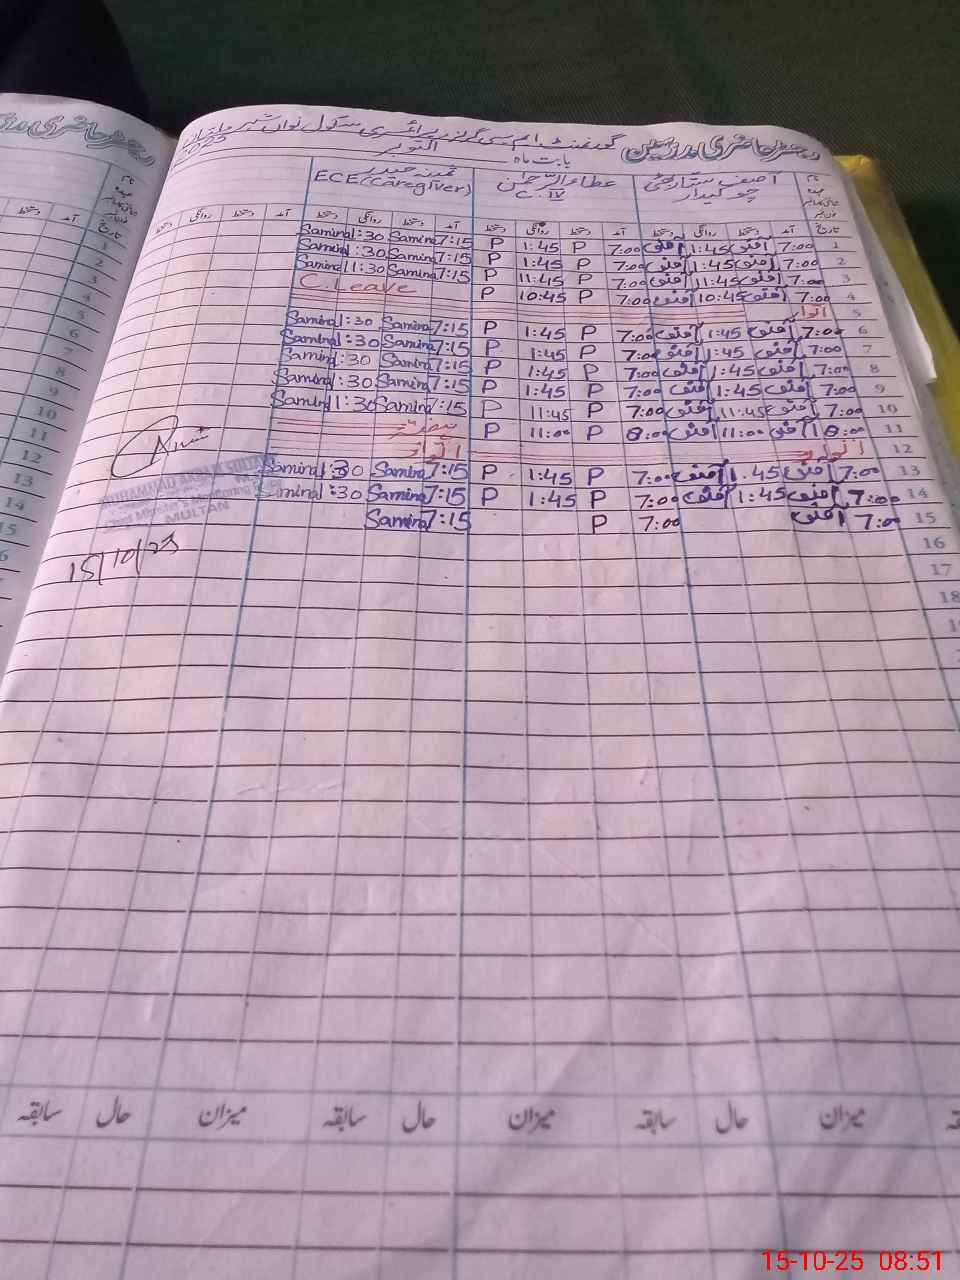 رجسٹر حاضری مدرسین گورنمنٹ ایم سی گرلز پرائمری سکول نواں شہر ملتان
بابت ماہ اکتوبر
نام آصف ستار بھٹی عطاء الرحمن ثمینہ حیدر
عہدہ چوکیدار C. IV ECE (Caregiver)
تاریخ آمد دستخط روانگی دستخط آمد دستخط روانگی دستخط آمد دستخط روانگی دستخط آمد دستخط روانگی دستخط
1 7:00 آصف 1:45 آصف 7:00 P 1:45 P 7:15 Samina 1:30 Samina
2 7:00 آصف 1:45 آصف 7:00 P 1:45 P 7:15 Samina 1:30 Samina
3 7:00 آصف 11:45 آصف 7:00 P 11:45 P 7:15 Samina 11:30 Samina
4 7:00 آصف 10:45 آصف 7:00 P 10:45 P C.Leave
5 اتوار
6 7:00 آصف 1:45 آصف 7:00 P 1:45 P 7:15 Samina 1:30 Samina
7 7:00 آصف 1:45 آصف 7:00 P 1:45 P 7:15 Samina 1:30 Samina
8 7:00 آصف 1:45 آصف 7:00 P 1:45 P 7:15 Samina 1:30 Samina
9 7:00 آصف 1:45 آصف 7:00 P 1:45 P 7:15 Samina 1:30 Samina
10 7:00 آصف 11:45 آصف 7:00 P 11:45 P 7:15 Samina 11:30 Samina
11 8:00 آصف 11:00 آصف 8:00 P 11:00 P ہفتہ
12 اتوار اتوار
13 7:00 آصف 1:45 آصف 7:00 P 1:45 P 7:15 Samina 1:30 Samina
14 7:00 آصف 1:45 آصف 7:00 P 1:45 P 7:15 Samina 1:30 Samina
15 7:00 آصف 7:00 P 7:15 Samina
MULTAN
15/10/25
16
17
18
میزان حال سابقہ میزان حال سابقہ میزان حال سابقہ
15-10-25 08:51